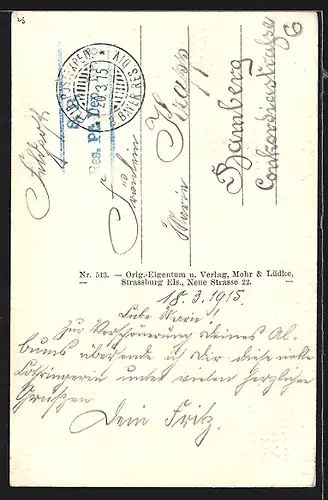 Feldpost
Fräulein
Marie Krapp
Bamberg
Concordiastrasse
6
Nr. 513. — Orig.-Eigentum u. Verlag, Mohr & Lüdke,
— Strassburg Els., Neue Strasse 22. —
18. 3. 1915.
Liebe Marie!
Zur Verschönerung deines Al-
bums übersende ich Dir diese nette
Lothringerin unter vielen herzlichen
Grüßen
Dein Fritz.